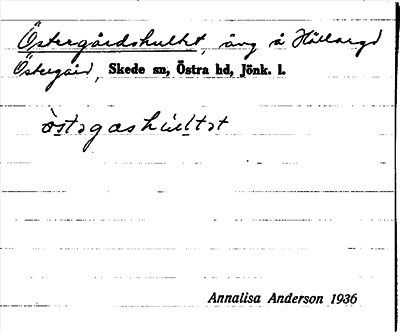 Östergårdshultet, äng å Hällaryd
Östergård, Skede sn, Östra hd, Jönk. l.
östəgashultət
Annalisa Anderson 1936